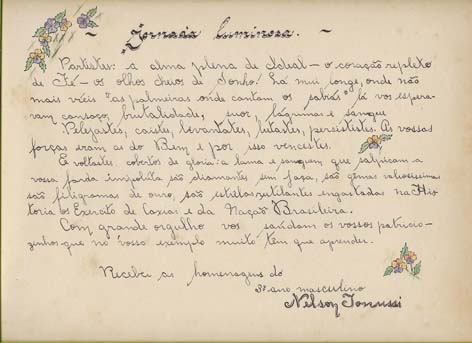 - Jornada luminosa. -
Partistes: a alma plena de Ideal - o coração repleto
de Fé - os olhos cheios de Sonho! Lá mui longe, onde não
mais vieis "as palmeiras onde cantam os sabiás" lá vos espera-
vam cansaço, brutalidade, suor lágrimas e sangue
Pelejastes, caistes, levantastes, lutastes, persististes. As vossas
forças eram as do Bem e por isso vencestes.
E voltastes cobertos de gloria: a lama e sangue que salpicam a
vossa farda impoluta são diamantes em jaça, são gemas valiosissimas
são filigramas de ouro, são estrelas rutilantes engastadas na His-
toria do Exercito de Caxias e da Nação Brasileira.
Com grande orgulho vos saudam os vossos patricio-
zinhos que no vosso exemplo muito tem que aprender.
Recebei as homenagens do
3º ano masculino
Nelson